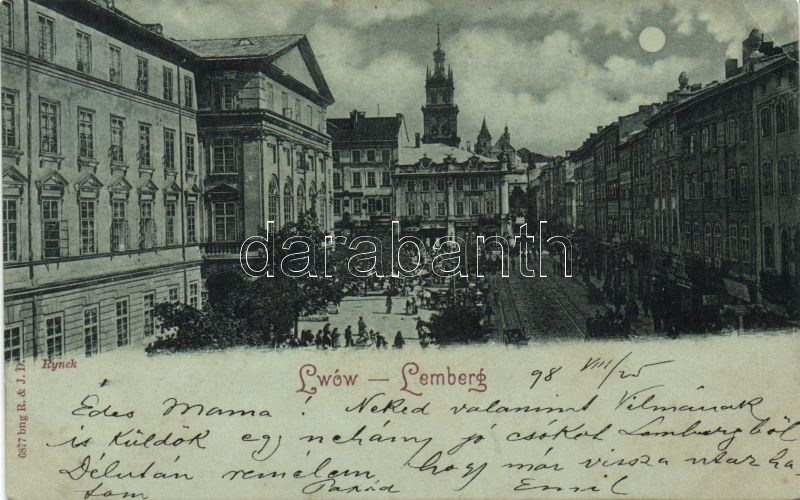 darabanth
Rynek
Lwów — Lemberg
98 VIII/25
6877 bng R. & J. D.
Édes Mama! Neked valamint Vilmának
is küldök egy nehány jó csókot Lembergből
Délután remélem hogy már vissza utazha-
tom Papád Emil